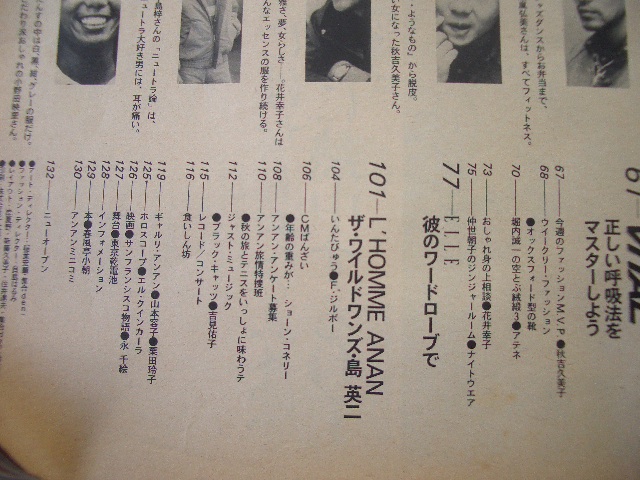 61 VITAL
正しい呼吸法を
マスターしよう
67 今週のファッションM.V.P.●秋吉久美子
68 ウイークリー・ファッション
●オックスフォード型の靴
70 堀内誠一の空とぶ絨緞3●アテネ
73 おしゃれ身の上相談●花井幸子
75 仲世朝子のジンジャールーム●ナイトウエア
77 ELLE
彼のワードローブで
101 L'HOMME ANAN
ザ・ワイルドワンズ・島 英二
104 いんたびゅう●F・ジルボー
106 CMばんざい
●年齢の重みが… ショーン・コネリー
108 アンアン・アンケート募集
110 アンアン旅情特捜班
●秋の旅とテニスをいっしょに味わうテ
112 ジャスト・ミュージック
●ブラック・キャッツ●吉見佑子
115 レコード／コンサート
116 食いしん坊
119 ギャルリ・アンアン●山本容子●栗田玲子
125 ホロスコープ●エル・クインカーラ
126 映画●サンフランシスコ物語●永 千絵
127 舞台●東京乾電池
128 インフォメーション
129 本●春風亭小朝
130 アンアンミニコミ
132 ニューオープン
ャズダンスからお弁当まで、
風弘美さんは、すべてフィットネス。
・ようなもの」から脱皮。
い女になった秋吉久美子さん。
雅さ、夢、女らしさ…。花井幸子さんは
んなエッセンスの服を作り続ける。
島梓さんの「ニュートラ論」は、
ュートラ大好き男には、耳が痛い。
んすの中は白、黒、紺、グレーの服だけ。